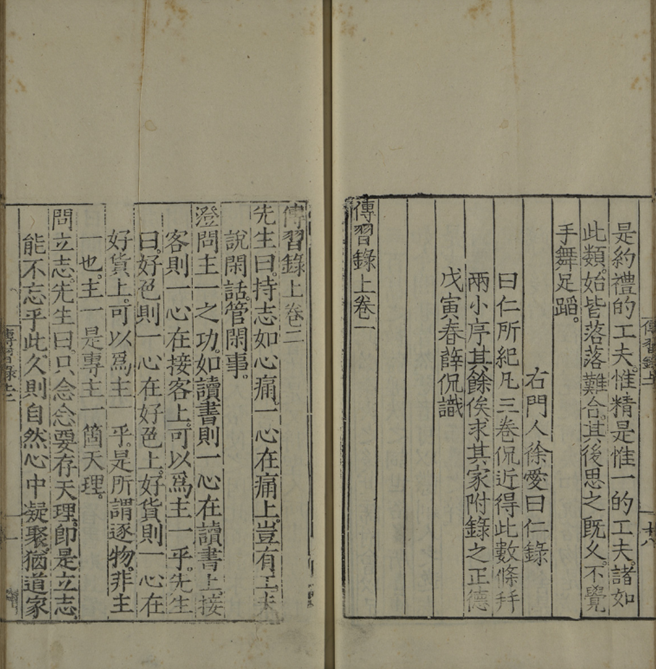 是約禮的工夫。惟精是惟一的工夫。諸如
此類。始皆落落難合。其後思之既久。不覺
手舞足蹈。
右門人徐愛曰仁錄
曰仁所紀凡三卷侃近得此數條幷
兩小序其餘俟求其家附錄之正德
戊寅春薛侃識
傳習錄上卷一
傳習錄上卷二
先生曰。持志如心痛。一心在痛上。豈有工夫
說閑話。管閑事。
澄問主一之功。如讀書則一心在讀書上。接
客則一心在接客上。可以爲主一乎。先生
曰。好色則一心在好色上。好貨則一心在
好貨上。可以爲主一乎。是所謂逐物。非主
一也。主一是專主一箇天理。
問立志。先生曰。只念念要存天理。卽是立志
能不忘乎此。久則自然心中凝聚。猶道家